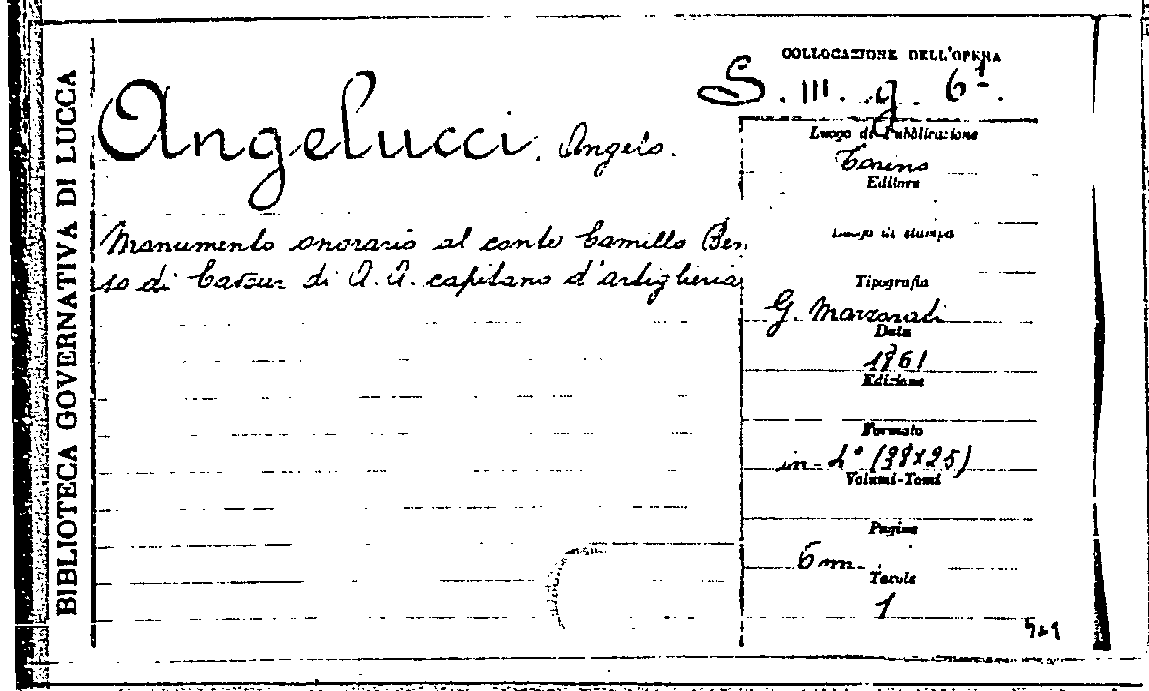 BIBLIOTECA GOVERNATIVA DI LUCCA
COLLOCAZIONE DELL'OPERA
S. III. g. 6
Angelucci, Angelo.
Monumento onorario al conte Camillo Ben-
so di Cavour di A. A. capitano d'artiglieria
Luogo di Pubblicazione
Torino
Editore
Luogo di stampa
Tipografia
G. Marzorati
Data
1861
Edizione
Formato
in-4° (38x25)
Volumi-Tomi
Pagine
6 nn.
Tavole
1